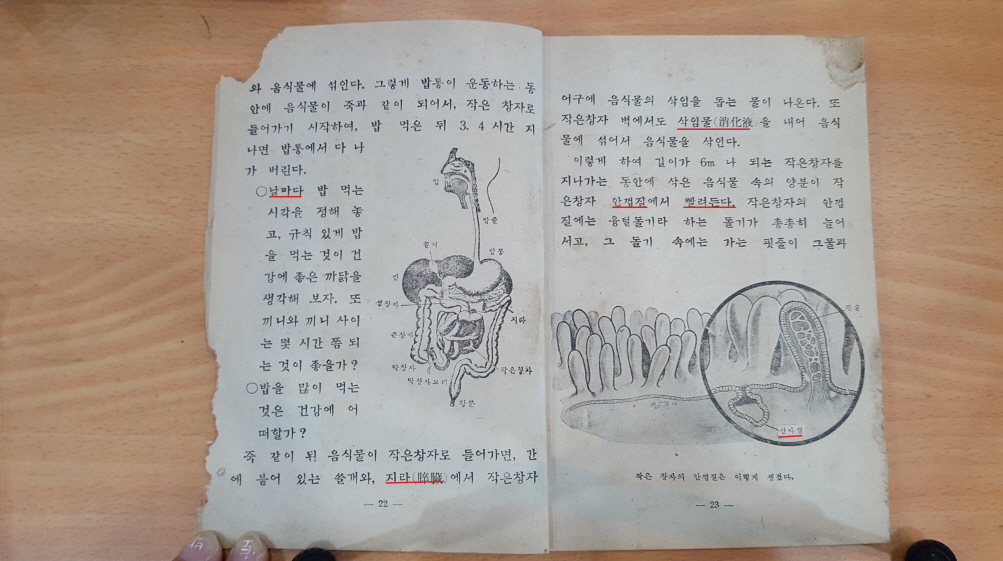 와 음식물에 섞인다. 그렇게 밥통이 운동하는 동
안에 음식물이 죽과 같이 되어서, 작은 창자로
들어가기 시작하여, 밥 먹은 뒤 3, 4 시간 지
나면 밥통에서 다 나
가 버린다.
○날마다 밥 먹는
시각을 정해 놓
고, 규칙 있게 밥
을 먹는 것이 건
강에 좋은 까닭을
생각해 보자. 또
끼니와 끼니 사이
는 몇 시간 쯤 되
는 것이 좋을가?
○밥을 많이 먹는
것은 건강에 어
떠할가?
입
밥줄
쓸개
밥통
간
샘창자
지라
큰창자
막창자
작은창자
막창자꼬리
밑문
죽 같이 된 음식물이 작은창자로 들어가면, 간
에 붙어 있는 쓸개와, 지라(膵臟)에서 작은창자
— 22 —
어구에 음식물의 삭임을 돕는 물이 나온다. 또
작은창자 벽에서도 삭임물(消化液)을 내어 음식
물에 섞어서 음식물을 삭인다.
이렇게 하여 길이가 6m 나 되는 작은창자를
지나가는 동안에 삭은 음식물 속의 양분이 작
은창자 안껍질에서 빨려든다. 작은창자의 안껍
질에는 융털돌기라 하는 돌기가 총총히 늘어
서고, 그 돌기 속에는 가는 핏줄이 그물과
작은 창자의 안껍질은 이렇게 생겼다.
— 23 —